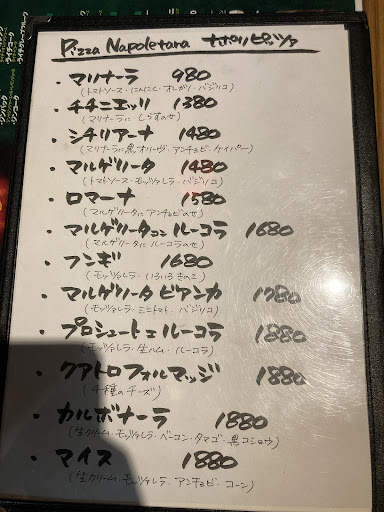 Pizza Napoletana ナポリピッツァ
・マリナーラ 980
(トマトソース・にんにく・オレガノ・バジリコ)
・チチニエッリ 1380
(マリナーラに しらすのせ)
・シチリアーナ 1480
(マリナーラに黒オリーヴ・アンチョビ・ケイパー)
・マルゲリータ 1480
(トマトソース・モッツァレラ・バジリコ)
・ロマーナ 1580
(マルゲリータにアンチョビのせ)
・マルゲリータコン ルーコラ 1680
(マルゲリータに ルーコラのせ)
・フンギ 1680
(モッツァレラ・いろいろきのこ)
・マルゲリータ ビアンカ 1780
(モッツァレラ・ミニトマト・バジリコ)
・プロシュートエ ルーコラ 1880
(モッツァレラ・生ハム・ルーコラ)
・クアトロフォルマッジ 1880
(4種のチーズ)
・カルボナーラ 1880
(生クリーム・モッツァレラ・ベーコン・タマゴ・黒コショウ)
・マイス 1880
(生クリーム・モッツァレラ・アンチョビ・コーン)